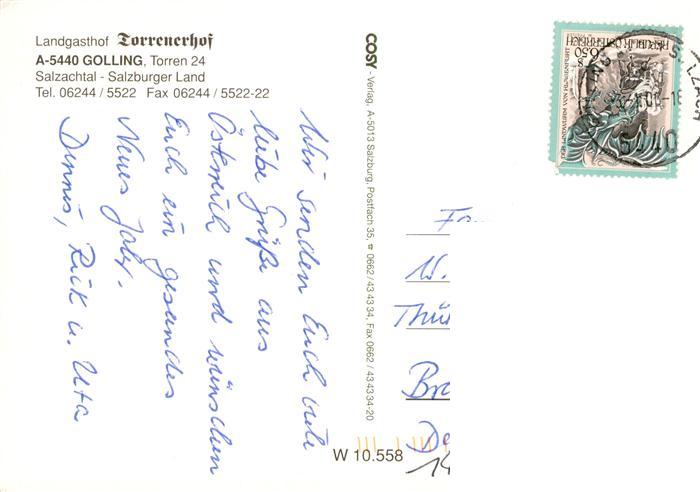 Landgasthof Torrenerhof
A-5440 GOLLING, Torren 24
Salzachtal - Salzburger Land
Tel. 06244 / 5522 Fax 06244 / 5522-22
Wir senden Euch viele
liebe Grüße aus
Österreich und wünschen
Euch ein gesundes
Neues Jahr.
Dennis, Rick u. Uta
COSY - Verlag, A-5013 Salzburg, Postfach 35, ☎ 0662 / 43 43 34, Fax 0662 / 43 43 34-20
W 10.558
REPUBLIK ÖSTERREICH
S 6.50
5440
W.
Thü
Bra
De
14